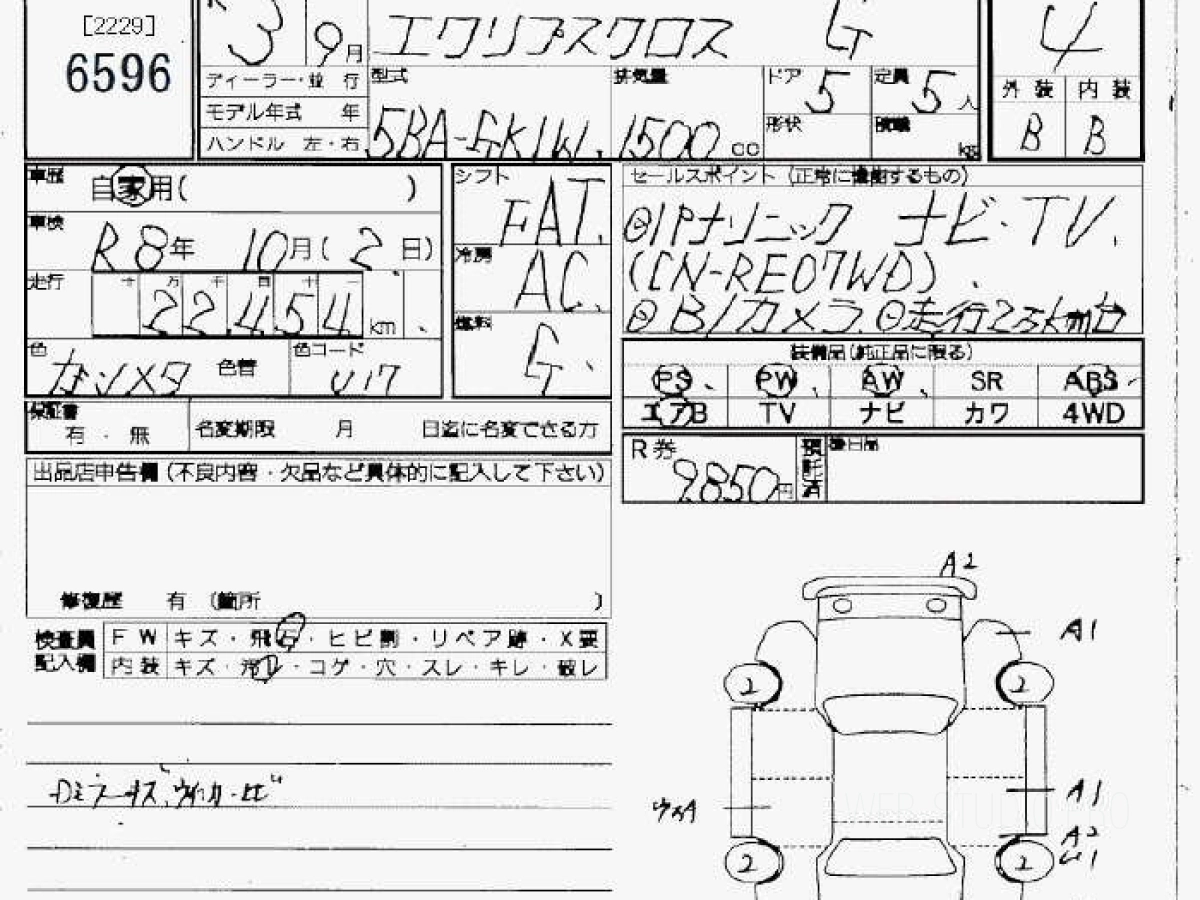 [2229]
6596
3 9月 エクリプスクロス G
4
ディーラー・並 行
モデル年式 年
ハンドル 左・右
型式 5BA-GK1W
排気量 1500 cc
ドア 5
定員 5人
形状
積載 kg
外装 内装
B B
車歴 自家用( )
車検 R8年 10月(2日)
走行 十万千百十一
22,454 km
色 ガンメタ 色替
色コード U17
シフト FAT
冷房 AC
燃料 G
セールスポイント (正常に機能するもの)
⊙パナソニック ナビ・TV.
(CN-RE07WD).
⊙B/カメラ ⊙走行2万km台
装備品(純正品に限る)
PS PW AW SR ABS
エアB TV ナビ カワ 4WD
保証書 有・無
名変期限 月 日迄に名変できる方
R券 9850円
預託済
後日品
出品店申告欄(不良内容・欠品など具体的に記入して下さい)
修復歴 有 (箇所 )
検査員記入欄
FW キズ・飛石・ヒビ割・リペア跡・X要
内装 キズ・汚レ・コゲ・穴・スレ・キレ・破レ
A2
A1
2 2
A1
A2
2 2